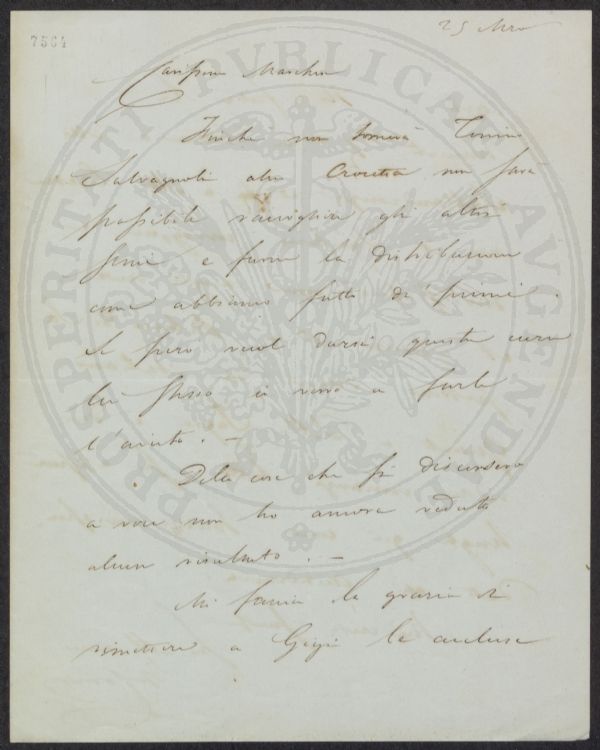 7564
25
Carissimo
Finche non tornerà
Salvagnoli alla Crocetta non sarà
possibile raccogliere gli altri
semi e farne la distribuzione
come abbiamo fatto di primi.
però vuol darsi questa cura
lo stesso io verrò a farle
l'aiuto. —
Delle cose che si discorsero
a voce non ho ancora veduto
alcun risultato. —
Mi faccia la grazia di
rimettere a Gigi le accluse
PROSPERITATI PVBLICAE AVGENDAE